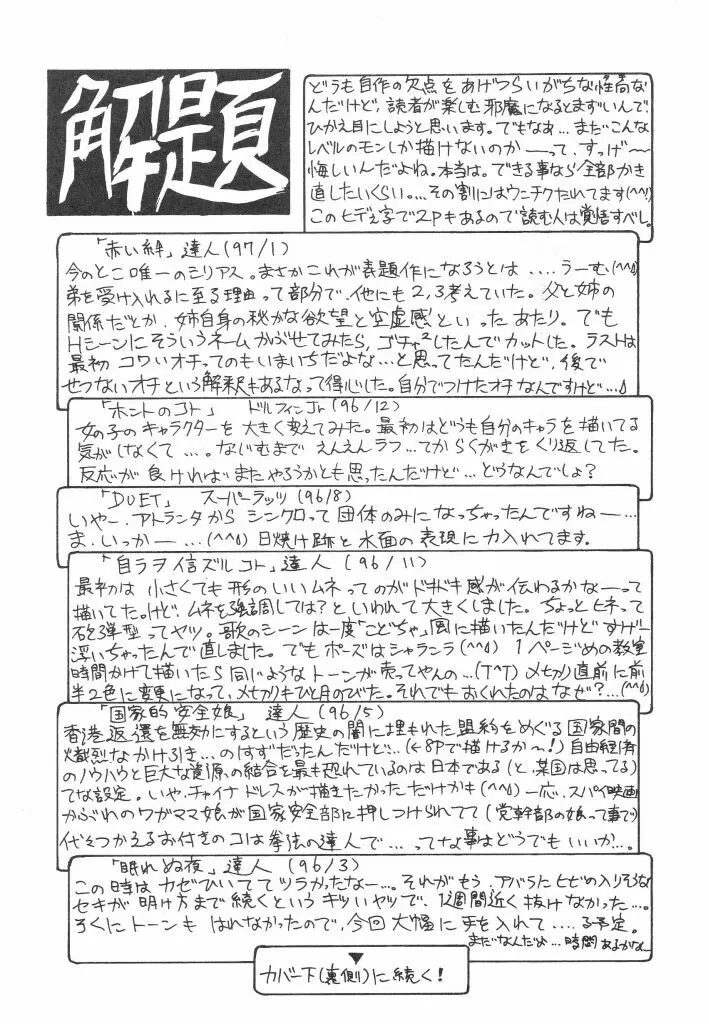 解題
どうも自作の欠点をあげつらいがちな性向な
んだけど、読者が楽しむ邪魔になるとまずいんで
ひかえ目にしようと思います。でもなあ…まだこんな
レベルのモンしか描けないのか ――って、すっげ〜
悔しいんだよね。本当は。できる事なら全部かき
直したいくらい。…その割にはウンチクたれてます(^^;)
このヒデェ字で2Pもあるので読む人は覚悟すべし。
「赤い絆」達人(97/1)
今のとこ唯一のシリアス。まさかこれが表題作になろうとは ‥‥うーむ(^^;)
弟を受け入れるに至る理由って部分で、他にも2,3考えていた。父と姉の
関係だとか、姉自身の秘かな欲望と空虚感といったあたり。でも
Hシーンにそういうネームかぶせてみたら、ゴチャ²したんでカットした。ラストは
最初コワいオチってのもいまいちだよな…と思ってたんだけど、後で
せつないオチという解釈もあるなって得心した。自分でつけたオチなんですけど…
「ホントのコト」 ドルフィンJr(96/12)
女の子のキャラクターを大きく変えてみた。最初はどうも自分のキャラを描いてる
気がしなくて …。なじむまでえんえんラフ…てからくがきをくり返してた。
反応が良ければまたやろうかとも思ったんだけど…どうなんでしょ？
「DUET」 スーパーラッツ(96/8)
いやー、アトランタからシンクロって団体のみになっちゃったんですねー…
ま、いっかー…(^^;) 日焼け跡と水面の表現に力入れてます。
「自ラヲ信ズルコト」達人(96/11)
最初は小さくても形のいいムネってのがドキドキ感が伝わるかなーって
描いてた。けど、ムネを強調しては？といわれて大きくしました。ちょっとヒネって
砲弾型ってヤツ。歌のシーンは一度「こどちゃ」風に描いたんだけどすげー
浮いちゃったんで直しました。でもポーズはシャラニラ(^^;) 1ページめの教室
時間かけて描いたら同じようなトーンが売ってやんの…(T^T) メ切り直前に前
半2色に変更になって、メ切りもひと月のびた。それでもおくれたのはなぜ？…(^^;)
「国家的安全娘」達人(96/5)
香港返還を無効にするという歴史の闇に埋もれた盟約をめぐる国家間の
熾烈なかけ引き…のはずだったんだけど…(←8Pで描けるか〜！)自由経済
のノウハウと巨大な資源の結合を最も恐れているのは日本である(と、某国は思ってる)
てな設定。いや、チャイナドレスが描きたかっただけかも(^^;) 一応、スパイ映画
かぶれのワガママ娘が国家安全部に押しつけられてて(党幹部の娘って事で)
代々つかえるお付きのコは拳法の達人で…ってな事はどうでもいいか…。
「眠れぬ夜」達人(96/3)
この時はカゼひいててツラかったなー…。それがもう、アバラにヒビの入りそうな
セキが明け方まで続くというキツいヤツで、2週間近く抜けなかった…。
ろくにトーンもはれなかったので、今回大幅に手を入れて‥‥る予定。
まだなんだよ…時間あるかなー
▼
カバー下(裏側)に続く！